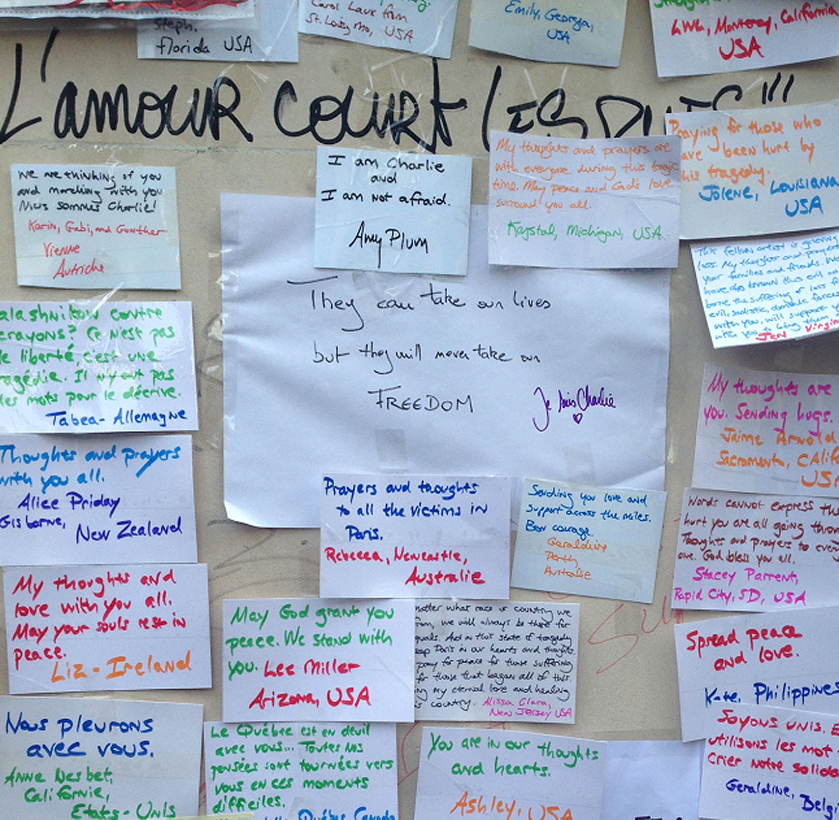 Steph.
Florida USA
Carol Laux fam
St. Louis, Mo, USA
Emily, Georgia,
USA
LWL, Monterey, California
USA
L'amour court
We are thinking of you
and marching with you
Nous sommes Charlie!
Karin, Gabi, and Gunther
Vienne
Autriche
I am Charlie
and
I am not afraid.
Amy Plum
My thoughts and prayers are
with everyone during this tragic
time. May peace and God's love
surround you all.
Krystal, Michigan, USA
Praying for those who
have been hurt by
this tragedy.
Jolene, Louisiana
USA
This fellow artist is grieving
loss. My thoughts and prayers
your families and friends. We
Jen Virginia
They can take our lives
but they will never take our
FREEDOM
Je suis Charlie
alashnikov contre
crayons? Ce n'est pas
de liberté, c'est une
tragédie. Il n'y ont pas
des mots pour le décrire.
Tabea - Allemagne
My thoughts are
you. Sending hugs.
Jaime Arnold
Sacramento, CAlif
USA
Thoughts and prayers
with you all.
Alice Priday
Gisborne, New Zealand
Prayers and thoughts
to all the victims in
Paris.
Rebecca, Newcastle,
Australie
Sending you love and
support across the miles.
Bon courage.
Geraldine
Perth,
Australie
Words cannot express the
hurt you are all going throu
Thoughts and prayers to every
one. God bless you all.
Stacey Parrent,
Rapid City, SD, USA
My thoughts and
love with you all.
May your souls rest in
peace.
Liz - Ireland
May God grant you
peace. We stand with
you. Lee Miller
Arizona, USA
matter what race or country we
from, we will always be there for
equals. And in this state of tragedy
keep Paris in our hearts and thoughts.
pray for peace for those suffering
for those that began all of this.
ing my eternal love and healing
is country. Alissa Clara,
New Jersey USA
Spread peace
and love.
Kate, Philippines
Nous pleurons
avec vous.
Anne Nesbet,
Californie,
Etats-Unis
Le Québec est en deuil
avec vous... Toutes nos
pensées sont tournées vers
vous en ces moments
difficiles.
Québec Canada
You are in our thoughts
and hearts.
Ashley, USA
Soyons unis. E
utilisons les mot
crier notre solida
Geraldine, Belgi